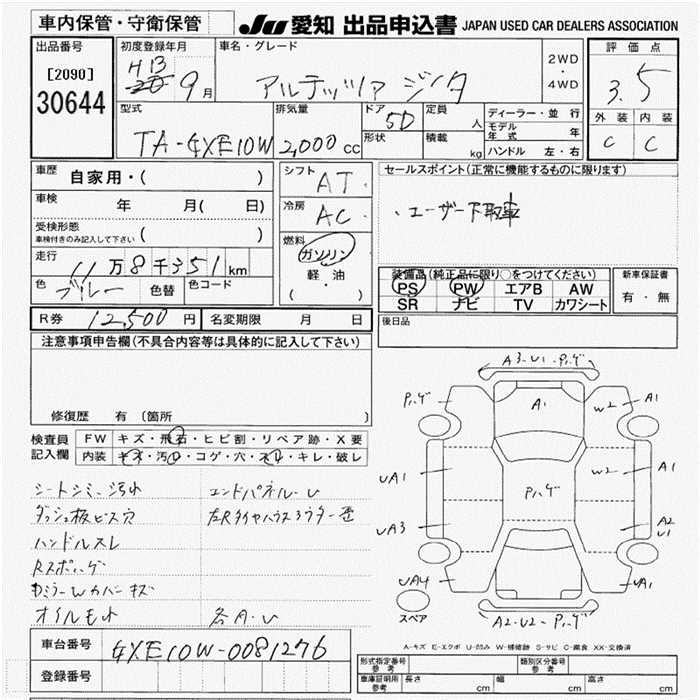 車内保管・守衛保管
JU 愛知 出品申込書 JAPAN USED CAR DEALERS ASSOCIATION
出品番号
[2090]
30644
初度登録年月
H13
9月
車名・グレード
アルテッツァ ジータ
2WD
・
4WD
評価点
3.5
外装 内装
C C
型式
TA-GXE10W
排気量
2,000cc
ドア
5D
形状
定員
人
積載
kg
ディーラー・並行
モデル年式 年
ハンドル 左・右
車歴
自家用・( )
車検
年 月( 日)
受検形態
車検付きのみ記入して下さい ( )
走行
11万8千351km
色
ブルー
色替
色コード
シフト
AT
冷房
AC
燃料
ガソリン
軽・油
( ・ )
セールスポイント(正常に機能するものに限ります)
・ユーザー下取車
装備品(純正品に限り○をつけてください)
PS PW エアB AW
SR ナビ TV カワシート
新車保証書
有・無
R券 12,500円
名変期限 月 日
後日品
注意事項申告欄(不具合内容等は具体的に記入して下さい)
修復歴 有(箇所 )
検査員
記入欄
FW キズ・飛石・ヒビ割・リペア跡・X要
内装 キズ・汚れ・コゲ・穴・スレ・キレ・破レ
シートシミ、汚れ
エンドパネルーU
ダッシュ板ビス穴
左Rタイヤハウス
ハンドルスレ
Rスポハゲ
ミラーWカバーキズ
オイルモレ
各A・U
A3・U1・Pハゲ
Pハゲ
A1
W2
A1
UA1
W2
Pハゲ
UA3
A2
U1
UA4
UA1
スペア
A2・U2・Pハゲ
A-キズ E-エクボ U-凹み W-補修跡 S-サビ C-腐食 XX-交換済
車台番号
GXE10W-0081276
登録番号
形式指定番号
参考
類別区分番号
参考
車庫証明用
参考
長さ cm
幅 cm
高さ cm